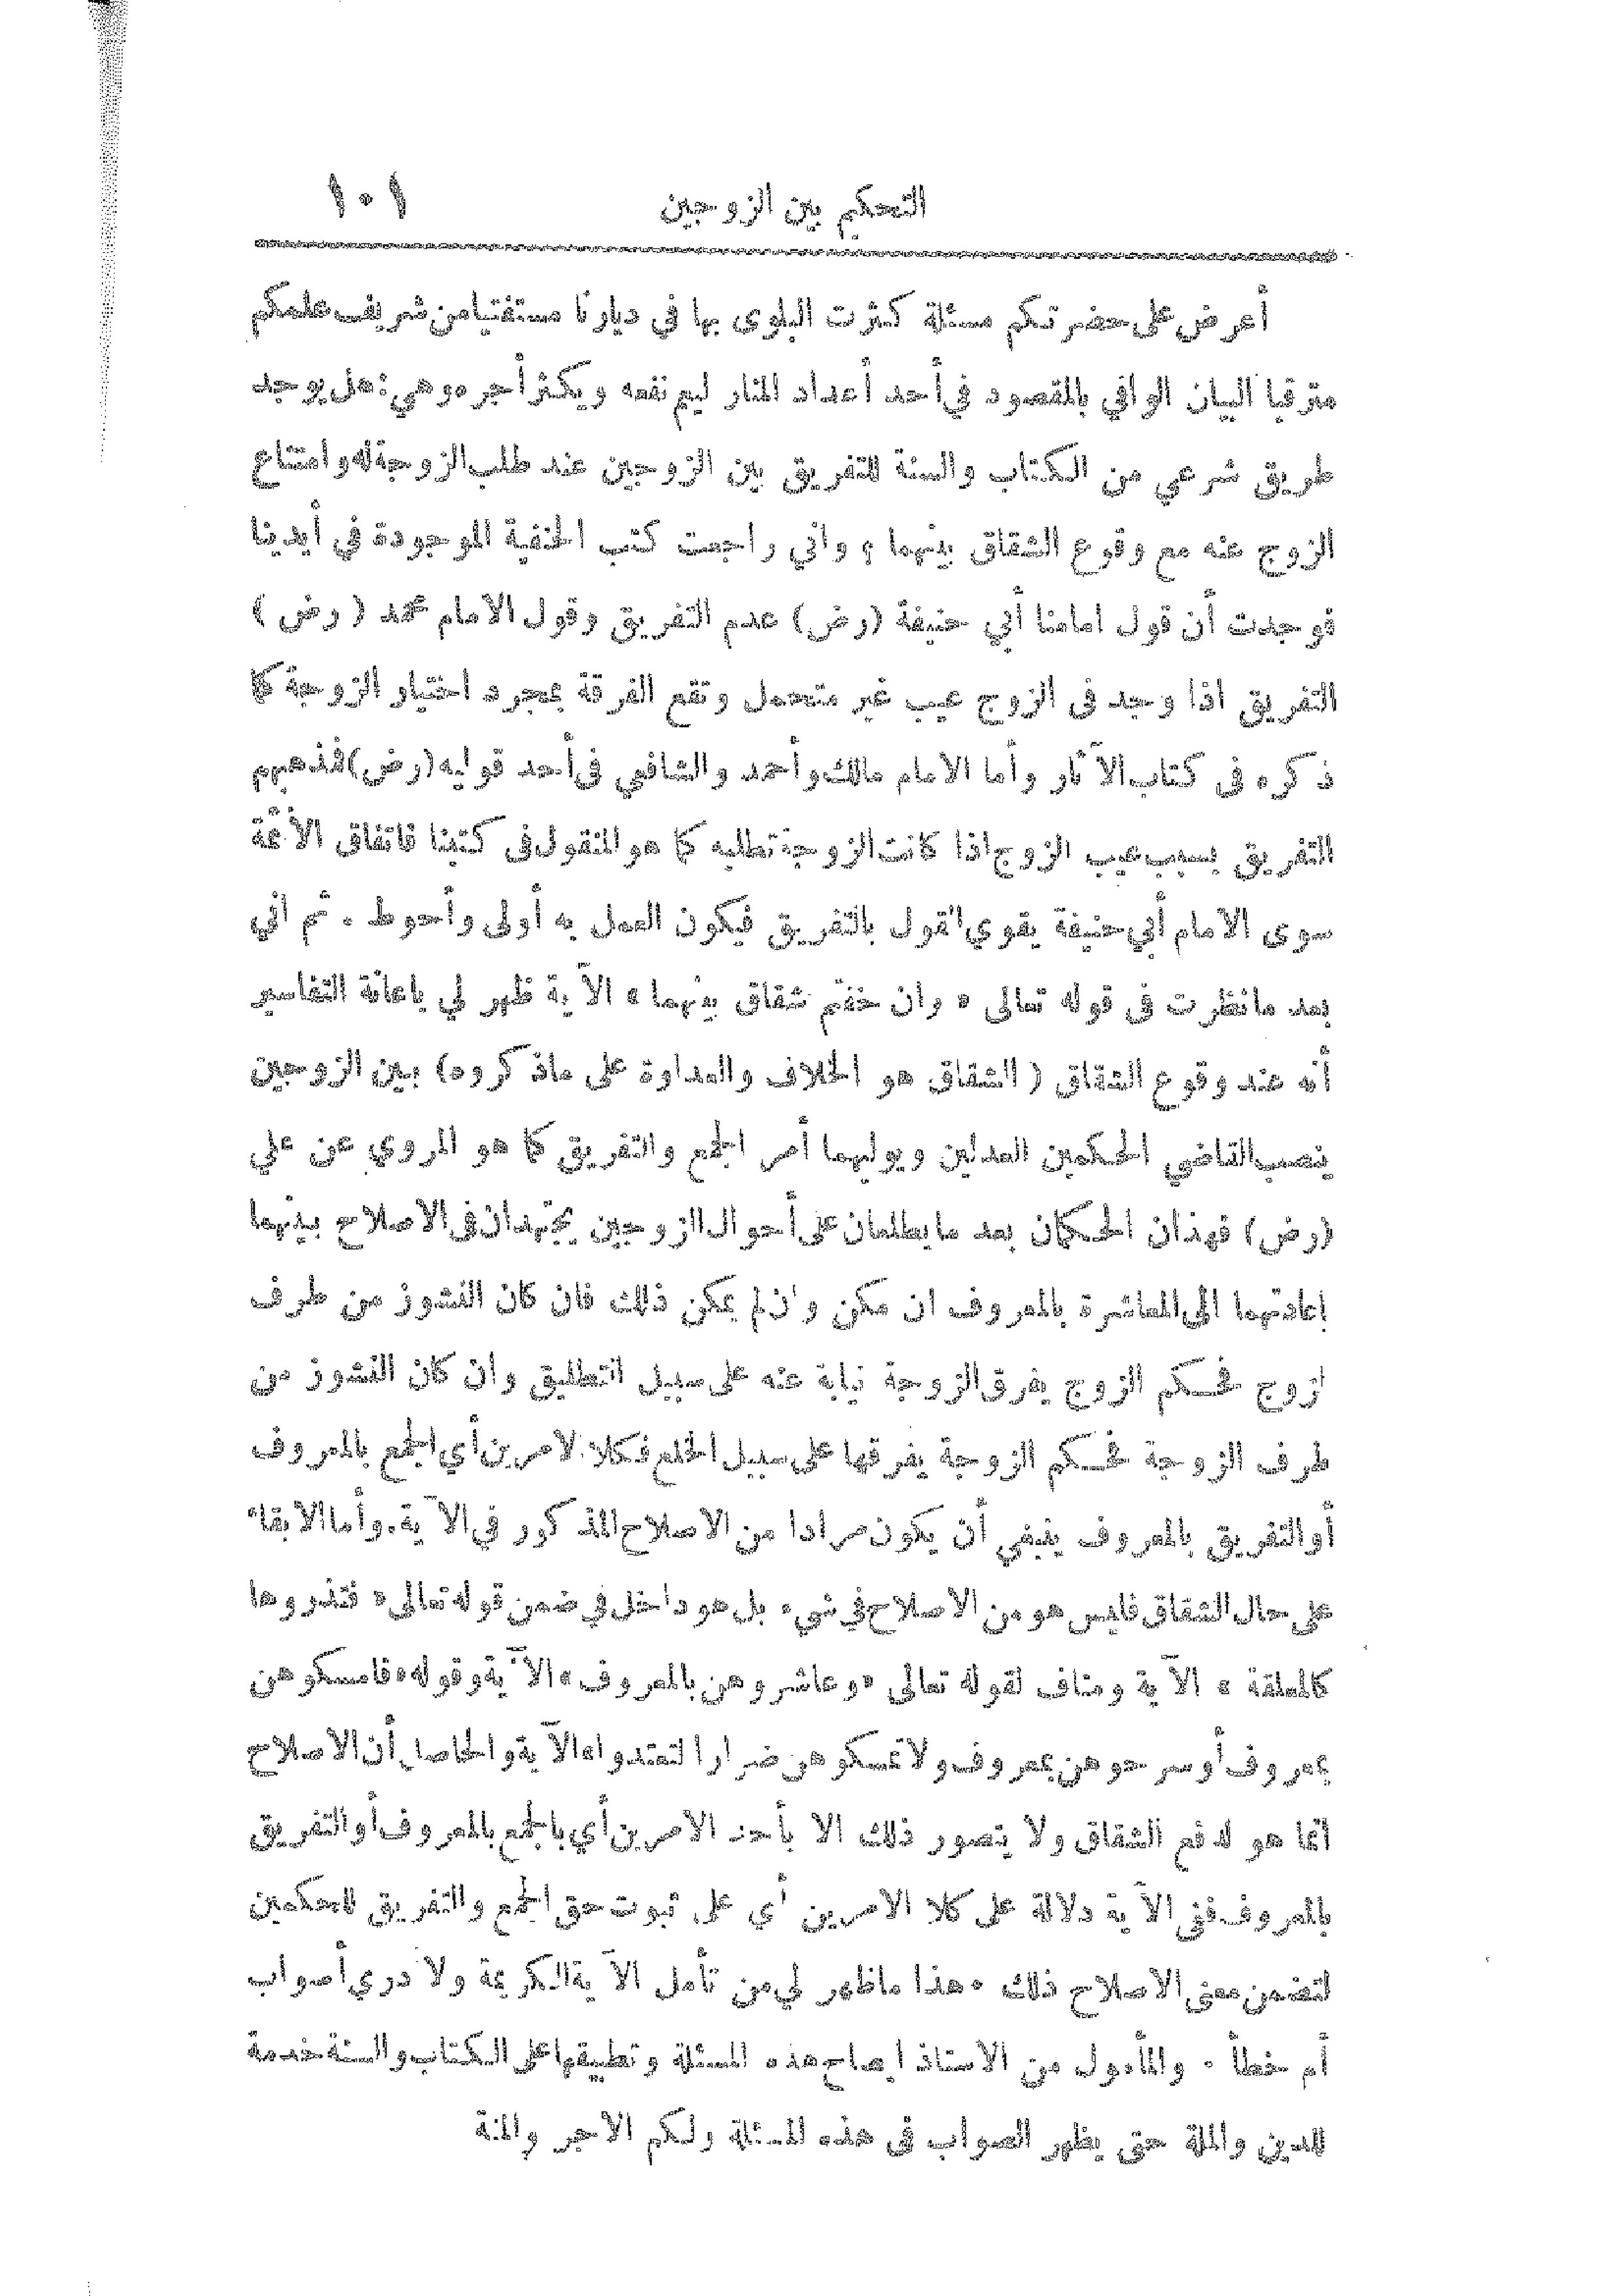 التحكيم بين الزوجين ١٠١
أعرض على حضرتكم مسئلة كثرت البلوى بها في ديارنا مستفتيا من شريف علمكم
مترقبا البيان الوافي بالمقصود في أحد أعداد المنار ليعم نفعه ويكثر أجره وهي: هل يوجد
طريق شرعي من الكتاب والسنة للتفريق بين الزوجين عند طلب الزوجة له وامتناع
الزوج عنه مع وقوع الشقاق بينهما ؟ واني راجعت كتب الحنفية الموجودة في أيدينا
فوجدت أن قول امامنا أبي حنيفة (رض) عدم التفريق وقول الامام محمد (رض)
التفريق اذا وجد في الزوج عيب غير متحمل وتقع الفرقة بمجرد اختيار الزوجة كما
ذكره في كتاب الآثار وأما الامام مالك وأحمد والشافعي في أحد قوليه (رض) فمذهبهم
التفريق بسبب عيب الزوج اذا كانت الزوجة تطلبه كما هو المنقول في كتبنا فاتفاق الأئمة
سوى الامام أبي حنيفة يقوي القول بالتفريق فيكون العمل به أولى وأحوط . ثم اني
بعد ما نظرت في قوله تعالى « وان خفتم شقاق بينهما » الآية ظهر لي باعانة التفاسير
أنه عند وقوع الشقاق ( الشقاق هو الخلاف والعداوة على ماذكروه) بين الزوجين
ينصب القاضي الحكمين العدلين ويوليهما أمر الجمع والتفريق كما هو المروي عن علي
(رض) فهذان الحكمان بعد ما يطلعان على أحوال الزوجين يجتهدان في الاصلاح بينهما
إعادتهما الى المعاشرة بالمعروف ان مكن وان لم يمكن ذلك فان كان النشوز من طرف
الزوج فحكم الزوج يفرق الزوجة نيابة عنه على سبيل التطليق وان كان النشوز من
طرف الزوجة فحكم الزوجة يفرقها على سبيل الخلع فكلا الامرين أي الجمع بالمعروف
أو التفريق بالمعروف ينبغي أن يكون مرادا من الاصلاح المذكور في الآية. وأما الابقاء
على حال الشقاق فليس هو من الاصلاح في شيء بل هو داخل في ضمن قوله تعالى « فتذروها
كالمعلقة » الآية ومناف لقوله تعالى « وعاشروهن بالمعروف » الآية وقوله « فامسكوهن
بمعروف أو سرحوهن بمعروف ولا تمسكوهن ضرارا لتعتدوا » الآية والحاصل أن الاصلاح
انما هو لدفع الشقاق ولا يتصور ذلك الا بأحد الامرين أي بالجمع بالمعروف أو التفريق
بالمعروف ففي الآية دلالة على كلا الامرين أي على ثبوت حق الجمع والتفريق للحكمين
لتضمن معنى الاصلاح ذلك . هذا ما ظهر لي من تأمل الآية الكريمة ولا أدري أصواب
أم خطأ . والمأمول من الاستاذ ايضاح هذه المسئلة وتطبيقها على الكتاب والسنة خدمة
للدين والملة حتى يظهر الصواب في هذه المسئلة ولكم الاجر والمنة